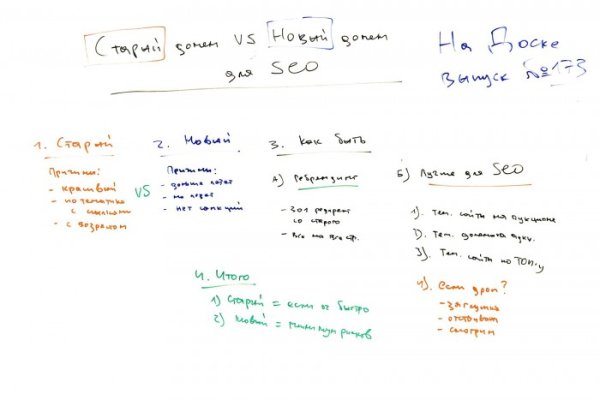 Старый домен VS Новый домен
для SEO
На Доске
выпуск №173
1. Старый
Причины:
- красивый
- по тематике
с ссылками
- с возрастом
VS
2. Новый
Причины:
- дольше
- не
- нет санкций
3. Как быть
А) Ребрендинг
- 301 редирект
со старого
- Все на все стр.
Б) Лучше для SEO
1). Тем. сайты на аукционе
2). Тем. домена аукц.
3). Тем. сайты по ТОП-у
4). Если дроп?
- заглушка
- отстоять
- смотрим
4. Итого
1) Старый = если ок быстро
2) Новый = минимум рисков